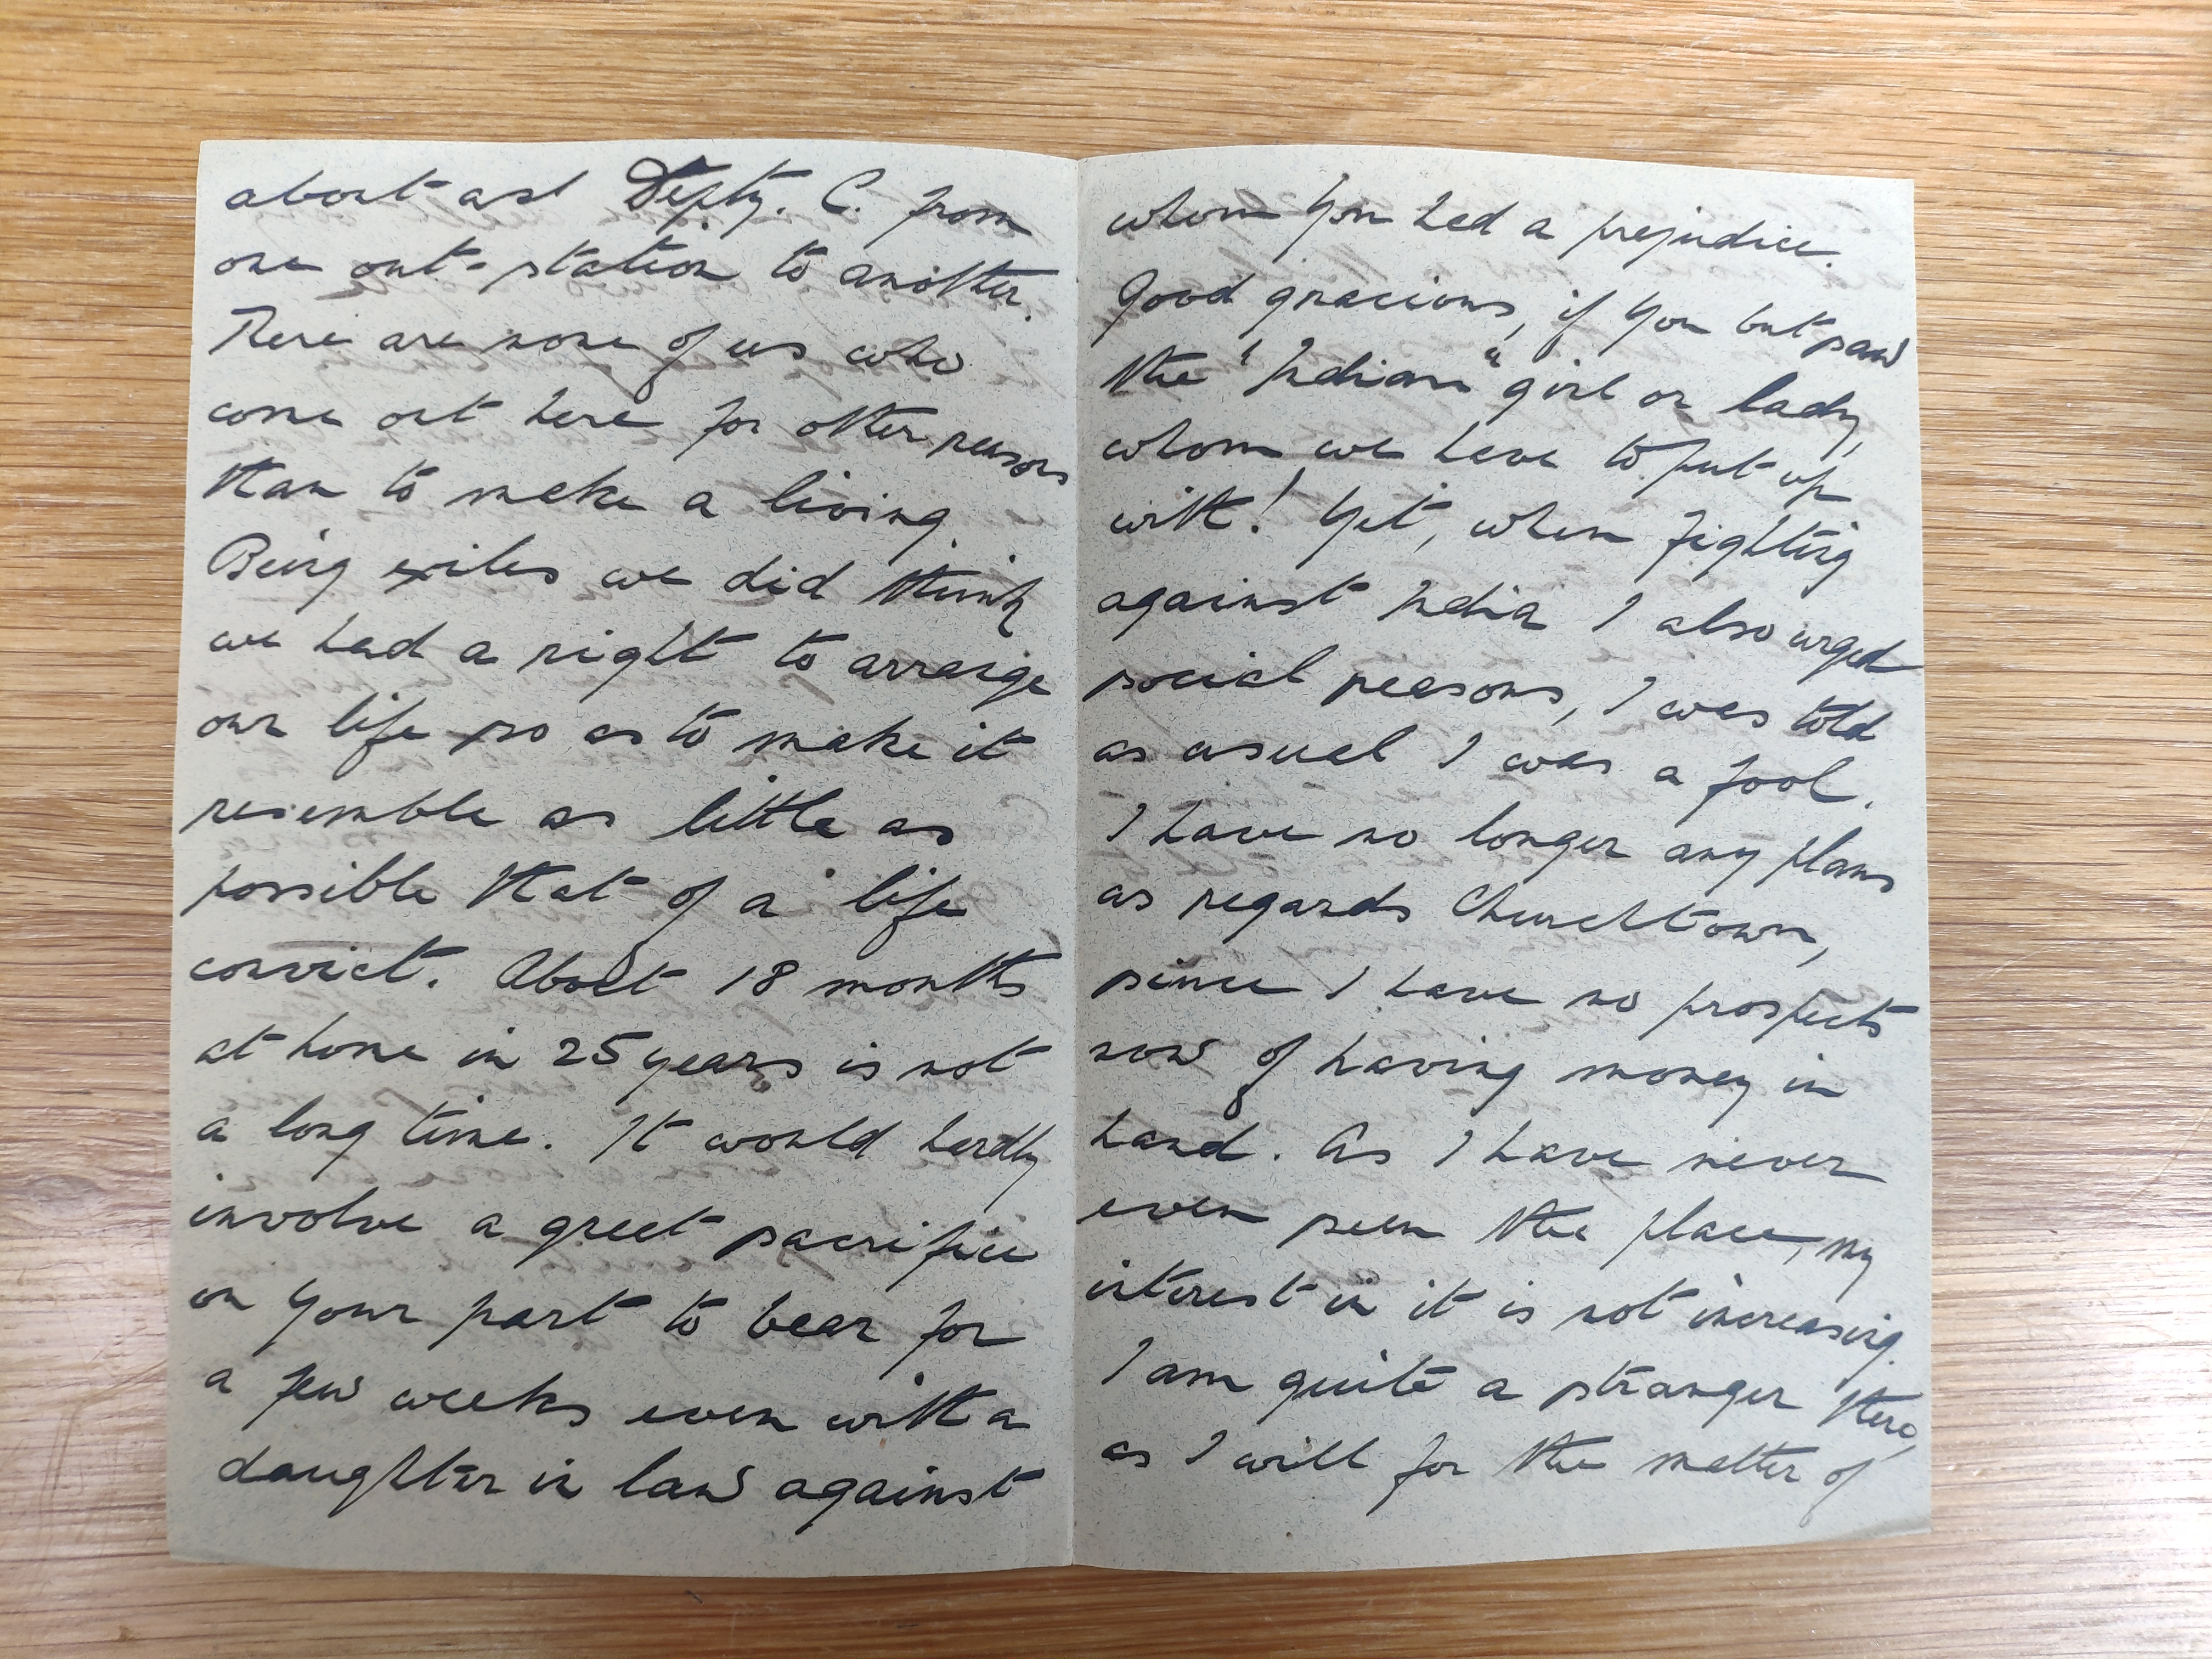 about asst Depty. C. from
one out-station to another.
There are none of us who
come out here for other reasons
than to make a living.
Being exiles we did think
we had a right to arrange
our life so as to make it
resemble as little as
possible that of a life
convict. About 18 months
at home in 25 years is not
a long time. It would hardly
involve a great sacrifice
on your part to bear for
a few weeks even with a
daughter in law against
whom you had a prejudice.
Good gracious, if you but saw
the "Indian" girl or lady,
whom we have to put up
with! Yet, when fighting
against India I also urged
social reasons, I was told
as usual I was a fool.
I have no longer any plans
as regards Churchtown,
since I have no prospects
now of having money in
hand. As I have never
even seen the place, my
interest in it is not increasing.
I am quite a stranger there,
as I will for the matter of